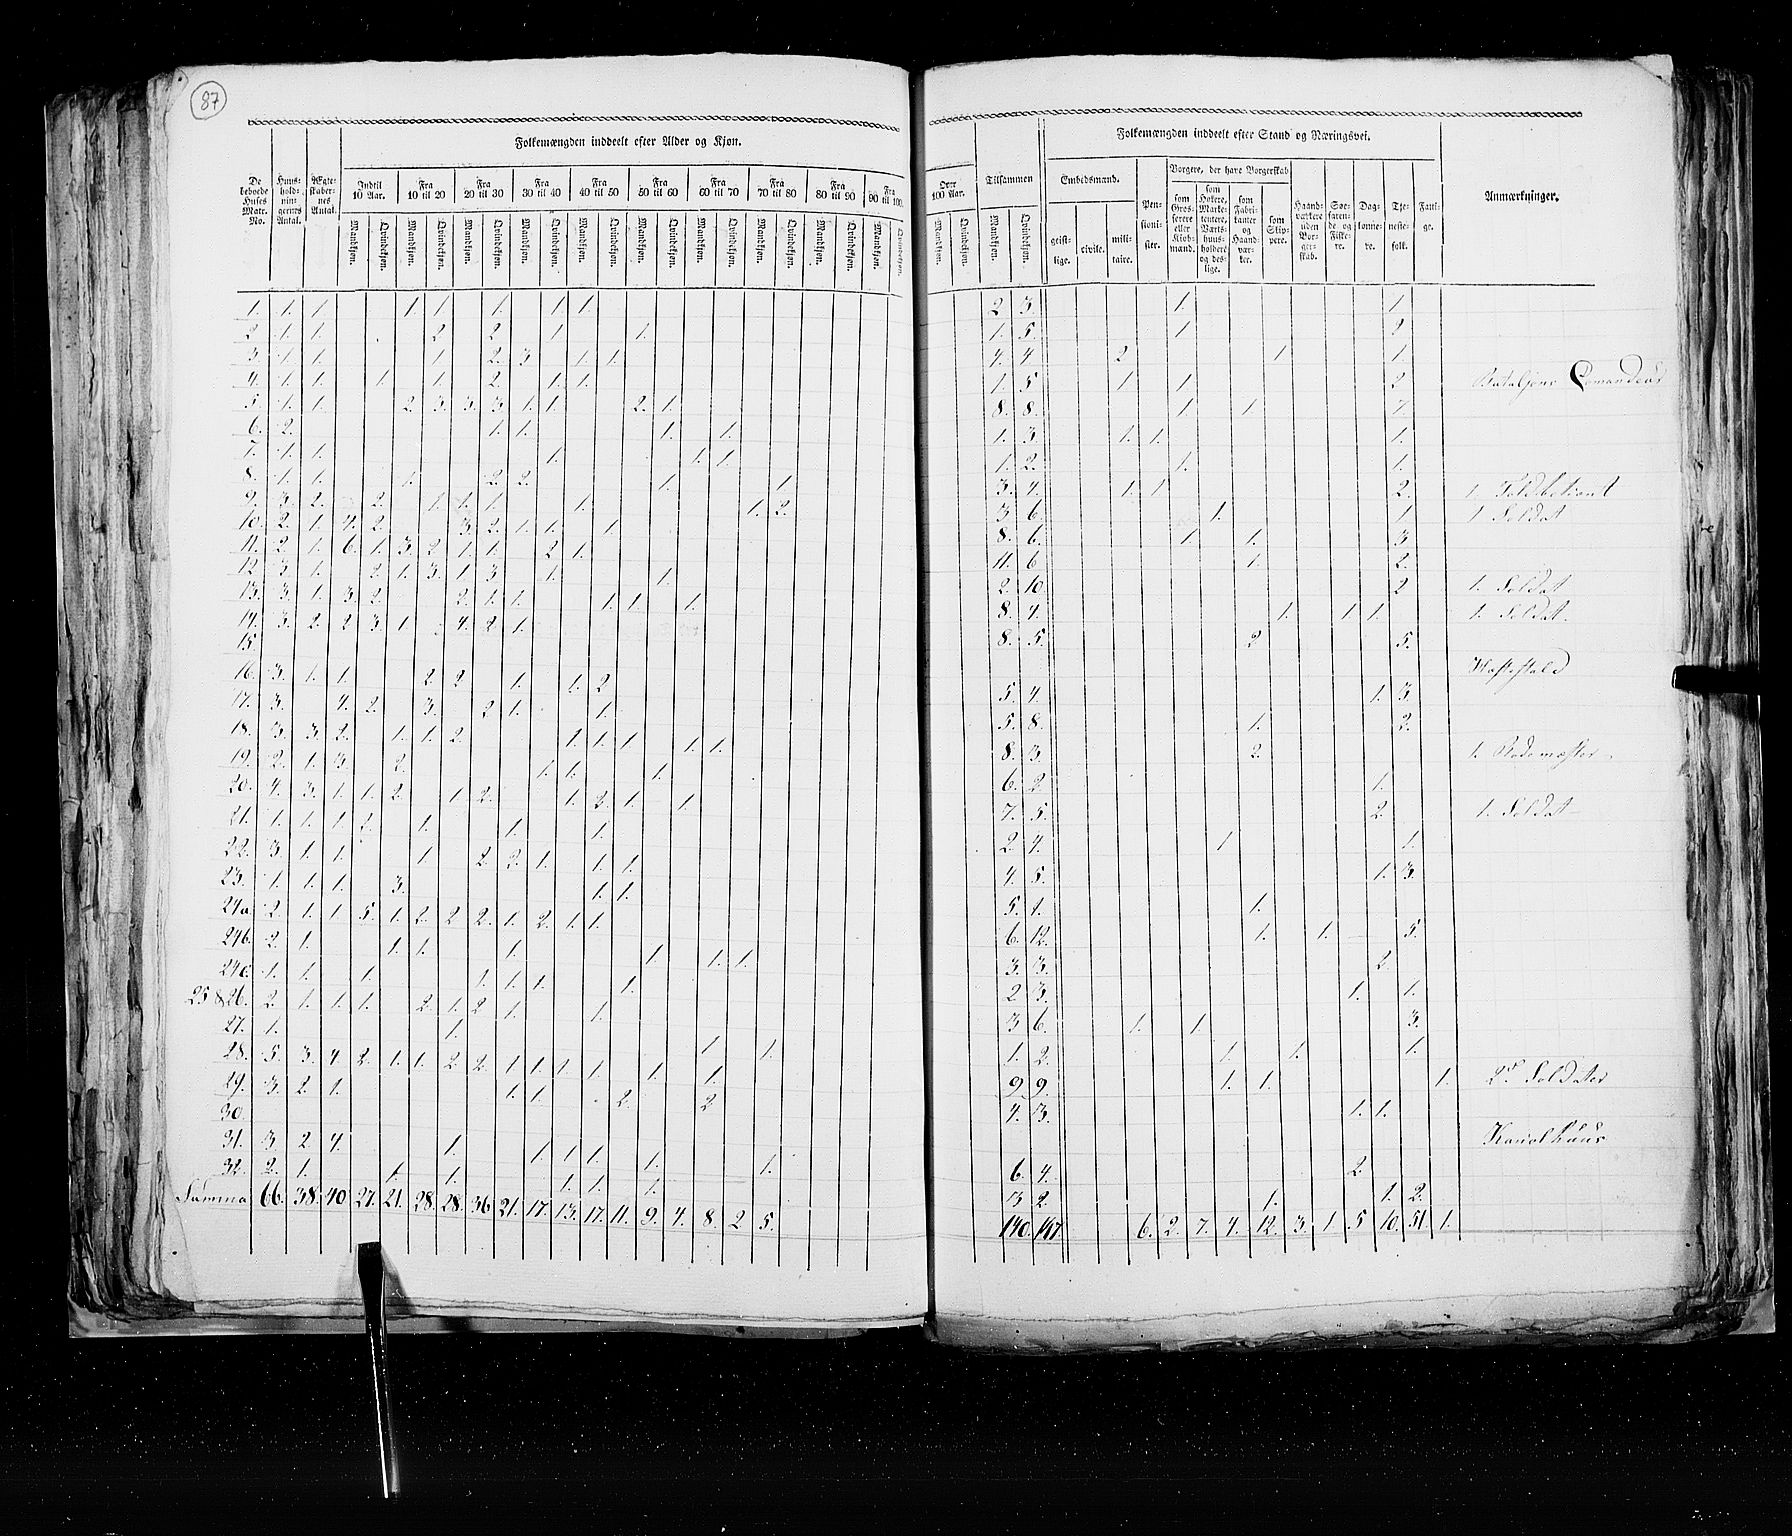 87
Folkemængden inddeelt efter Alder og Kjøn.
Folkemængden inddeelt efter Stand og Næringsvei.
De beboede Huses Matr. No.
Huus-holdnin-gernes Antal.
Ægte-skaber-nes Antal.
Indtil 10 Aar.
Fra 10 til 20
Fra 20 til 30
Fra 30 til 40
Fra 40 til 50
Fra 50 til 60
Fra 60 til 70
Fra 70 til 80
Fra 80 til 90
Fra 90 til 100.
Over 100 Aar.
Tilsammen
Mandkjøn. Qvindekjøn.
Embedsmænd.
geist-lige. civile. mili-taire.
Pen-sioni-ster.
Borgere, der have Borgerskab
som Gros-serere eller Kjøb-mænd.
som Høkere, Marke-tentere, Værts-huus-holdere og des-lige.
som Fabri-kanter og Haand-vær-ker.
som Skip-pere.
Haand-værkere uden Bor-ger-skab.
Søe-faren-de og Fiske-re.
Dag-lønne-re.
Tje-neste-folk.
Fatti-ge.
Anmærkninger.
1. 1. 1. 1. 1. 1. 1. 1. 2 3. 1. 1.
2 1. 1. 2 2. 1. 1. 1. 5. 1. 2
3 1. 1. 1. 2. 3. 1. 1. 4. 4 2 1 1.
4. 1. 1. 1. 1. 2. 1. 1. 1. 5. 1. 1. 2 Bataljons Comandeur
5. 1. 1. 2. 3. 3. 3. 1. 1. 2. 1. 8. 8. 1. 1 7.
6. 2. 1. 1. 1. 1. 1. 3. 1. 1. 1.
7. 1. 1. 1. 1. 1. 1. 2. 1. 1.
8. 1. 1. 1. 2. 2. 1. 1. 3. 4. 1. 1 2. 1. Toldbetient
9. 3. 2. 2. 1. 1. 1. 1. 1. 2. 3 6. 1. 1 1 Soldat
10. 2. 1. 4. 2. 3. 2. 1. 1. 1. 8. 6. 1. 1. 3
11. 2. 1. 6. 1. 3. 2 1. 1. 2 1. 11. 6 1. 2.
12. 3. 1. 2. 1. 3. 1 3. 1. 1. 2. 10 2 1. Soldat
13. 3. 1. 3. 2. 2. 1. 1. 1. 1. 1. 8. 4. 1. 1 1. 1. Soldat.
14. 3. 2. 2 3. 1. 4. 2 1. 8. 5. 2 5.
15. Hestestald
16. 3. 1. 1. 2. 2 1. 1. 2 5. 4. 1. 3.
17. 3. 4. 2. 3. 2 1. 1. 5. 8. 1. 2.
18. 3. 3. 2. 1. 1. 2. 1. 1. 1. 1. 1. 8. 3. 2. 1. Rodemester
19. 2. 1. 3. 2. 1. 1. 1. 6. 2. 1.
20. 4. 3. 1. 1. 2. 1. 2. 1. 2. 1. 1. 7. 5. 2. 1. Soldat
21. 1. 1. 1. 2. 1. 1. 1. 2. 4. 1 1.
22. 3. 1. 1. 1. 2. 2. 1. 1. 1. 4. 5. 1. 3.
23. 1. 1. 1. 3. 1. 1. 5. 1. 1.
24a. 2. 1. 1 5. 1. 2. 2 2. 1. 2. 1. 1. 6. 12. 1. 1. 5.
24b. 2. 1. 1. 1. 1. 1. 1. 1. 3. 3. 2.
24c. 1. 1. 1. 1. 1. 1. 1. 2 3. 1. 1.
25 & 26. 2. 1. 1. 1. 2. 1. 2 1. 1. 3 6. 1. 1. 3.
27. 1. 1. 1. 1. 1. 2. 1. 1. 1.
28. 5. 3. 4. 2. 1. 1. 2 2. 1. 1. 1. 1. 1. 1. 9 9. 1. 1. 1. 2de Soldater
29. 3. 2. 1. 1. 1. 2. 2 4. 3. 1. 1.
30.
31. 3 2 4. 1. 1. 1. 1. 1. 1. 6. 4. 2.
32. 2. 1. 1. 1. 1. 1. 1. 3 2. 1. 1. 2.
Summa 66. 38. 40. 27. 21. 28. 28. 36. 21. 17. 13. 17. 11. 9. 4. 8. 2 5. 140. 147 6. 2. 7. 4. 12. 3. 1. 5 10. 51. 1.